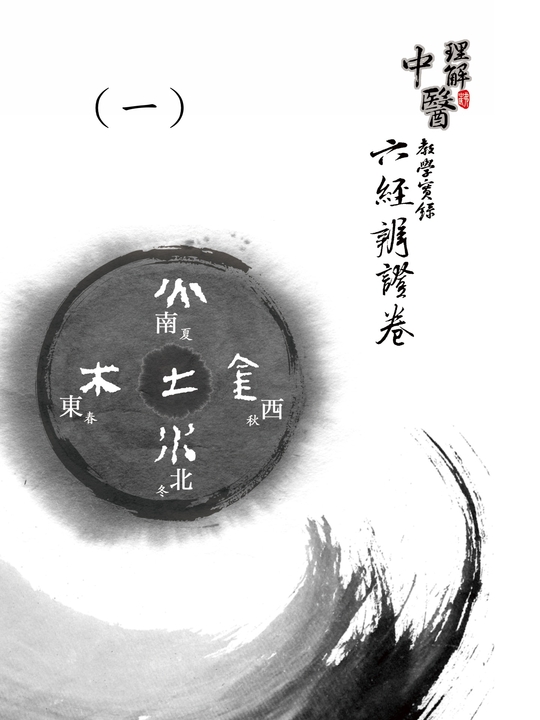 理解
中醫
教學實錄
六經辨證卷
（一）
火
南
夏
木
東
春
土
金
西
秋
水
北
冬